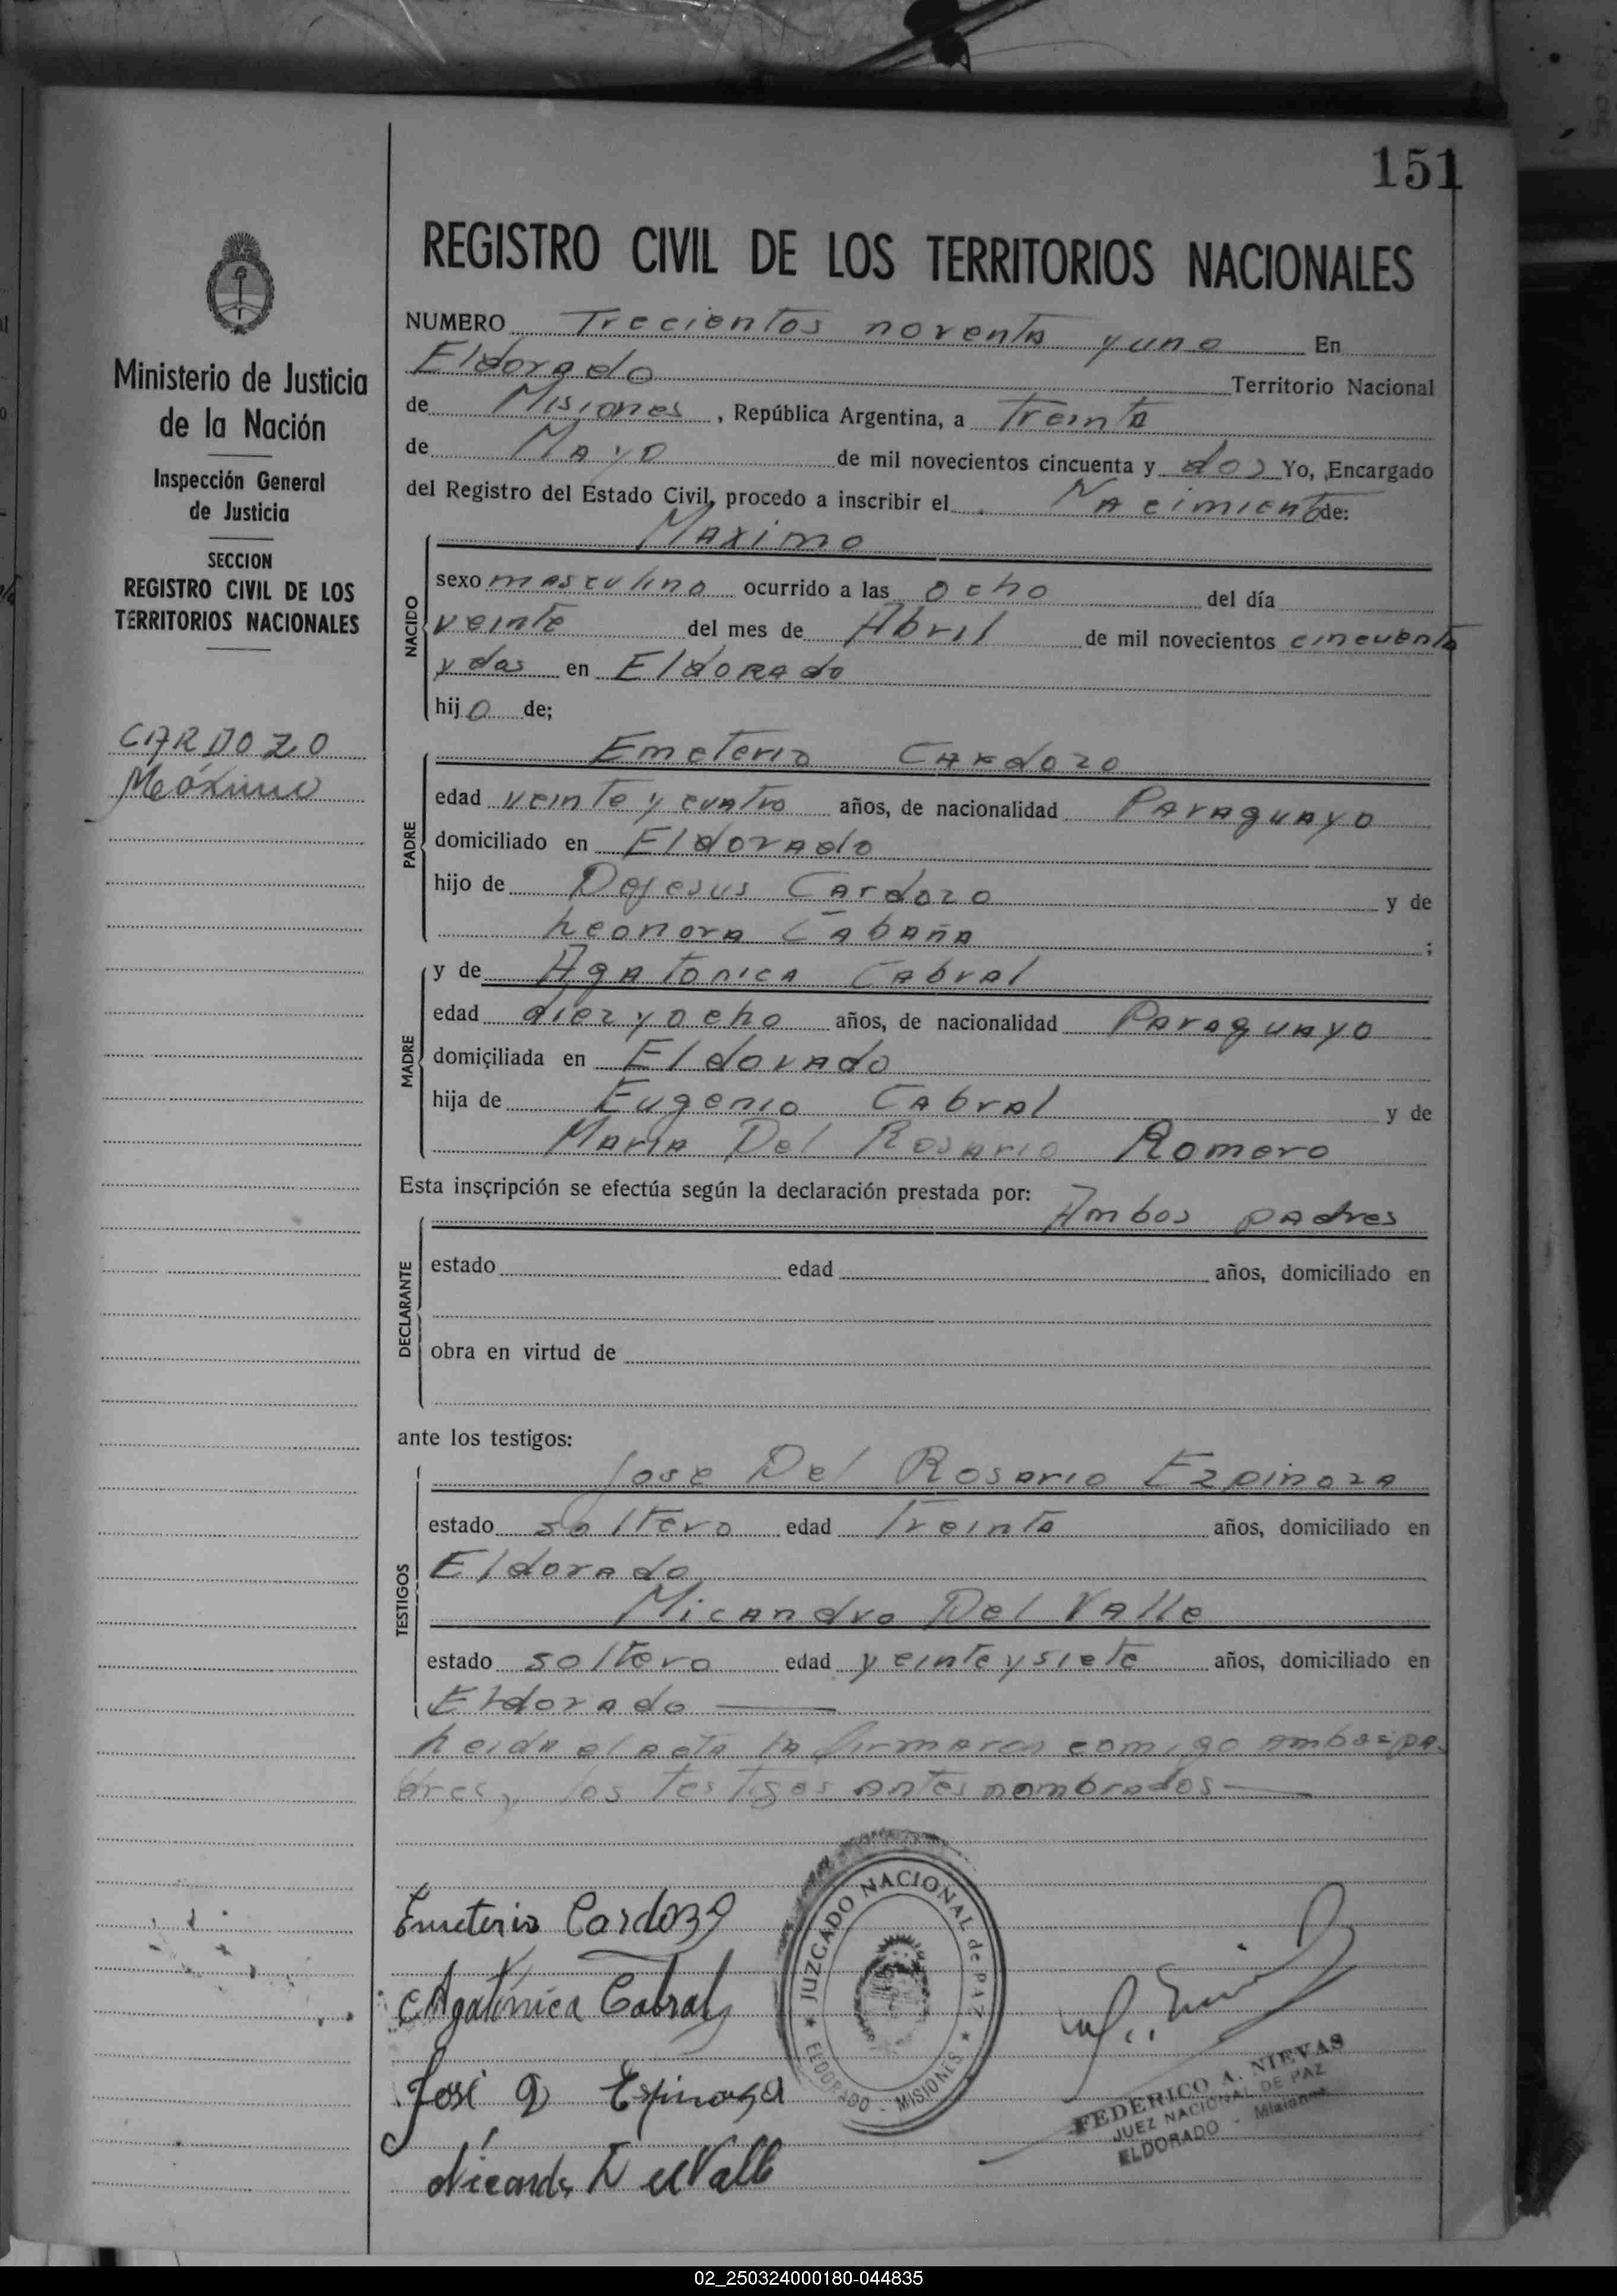 151
REGISTRO CIVIL DE LOS TERRITORIOS NACIONALES
Ministerio de Justicia
de la Nación
Inspección General
de Justicia
SECCION
REGISTRO CIVIL DE LOS
TERRITORIOS NACIONALES
CARDOZO
Máximo
NUMERO Trecientos noventa y uno En
Eldorado Territorio Nacional
de Misiones, República Argentina, a Treinta
de Mayo de mil novecientos cincuenta y dos Yo, Encargado
del Registro del Estado Civil, procedo a inscribir el Nacimiento de:
NACIDO
Maximo
sexo masculino ocurrido a las ocho del día
veinte del mes de Abril de mil novecientos cincuenta
y dos en Eldorado
hijo de;
PADRE
Emeterio Cardozo
edad veinte y cuatro años, de nacionalidad Paraguayo
domiciliado en Eldorado
hijo de Dejesus Cardozo y de
Leonora Cabaña ;
MADRE
y de Agatonica Cabral
edad diez y ocho años, de nacionalidad Paraguayo
domiciliada en Eldorado
hija de Eugenio Cabral y de
Maria Del Rosario Romero
Esta inscripción se efectúa según la declaración prestada por:
Ambos padres
DECLARANTE
estado edad años, domiciliado en
obra en virtud de
ante los testigos:
TESTIGOS
Jose Del Rosario Ezpinoza
estado soltero edad Treinta años, domiciliado en
Eldorado
Nicandro Del Valle
estado soltero edad veinte y siete años, domiciliado en
Eldorado
Leida el acta la firmaron comigo ambos pa
dres y los testigos antes nombrados
Emeterio Cardozo
Agatónica Cabral
José D Espinoza
Nicandro Del Valle
JUZGADO NACIONAL de PAZ
ELDORADO - MISIONES
FEDERICO A. NIEVAS
JUEZ NACIONAL DE PAZ
ELDORADO - Misiones
02_250324000180-044835